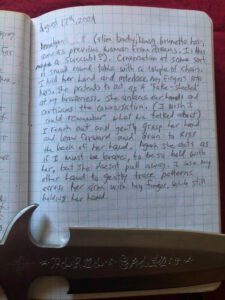 August 17th, 2021
(slim body, long brunette hair,
same as previous woman from dreams. Is this
maybe a succubus?). Conversation at some sort
of small round table with a couple of chairs.
I hold her hand and interlace my fingers into
hers. She pretends to act as if "fake-shocked"
at my braveness. She enlaces our hands and
continues the conversation. (I wish I
could remember what we talked about)
I reach out and gently grasp her hand
and lean forward and down to kiss
the back of her hand. Again she acts as
if I must be brave, to be so bold with
her, but she doesn't pull away. I use my
other hand to gently trace patterns
across her arm with my tongue, while still
holding her hand.